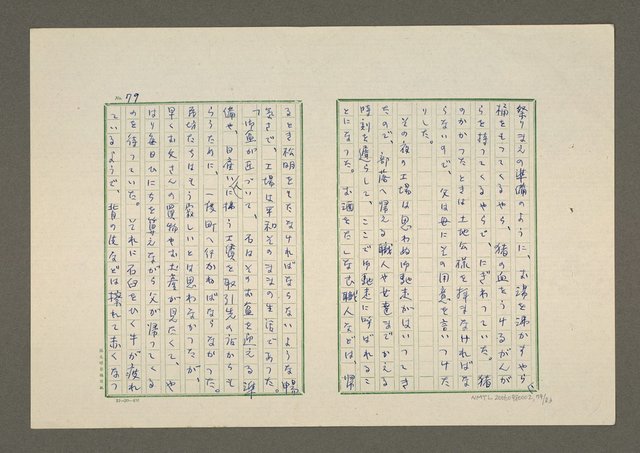 祭りまえの準備のように、お湯を沸かすやら、
桶をもってくるやら、猪の血をうけるがんが
らを持ってくるやらで、にぎわっていた。猪
のかかったときは土地公様を拝まなければな
らないので、父は母にその用意を言いつけた
りした。
その夜の工場は思わぬ御馳走がはいってき
たので、部落へ帰える職人や女達までかえる
時刻を遅らして、ここで御馳走に呼ばれるこ
とになった。お酒をだしなお職人などは、帰
No. 79
るとき松明をもたなければならないような暢
気さで、工場は平和そのままの生活であった。
御盆が近づいて、石はそのお盆を迎える準
備や、日産いに拂う工賃を取引先の店からも
らうために、一度町へ行かねばならなかった。
坊たちはもう寂しいとは思わなかったが、
早くお父さんの買物やお土産が見たくて、や
はり毎日ひにちを算えながら父が帰ってくる
のを待っていた。それに石臼をひく牛が疲れ
ているようで、背の皮などは擦れて赤くなっ
20×10
NMTL20060980002,79/83